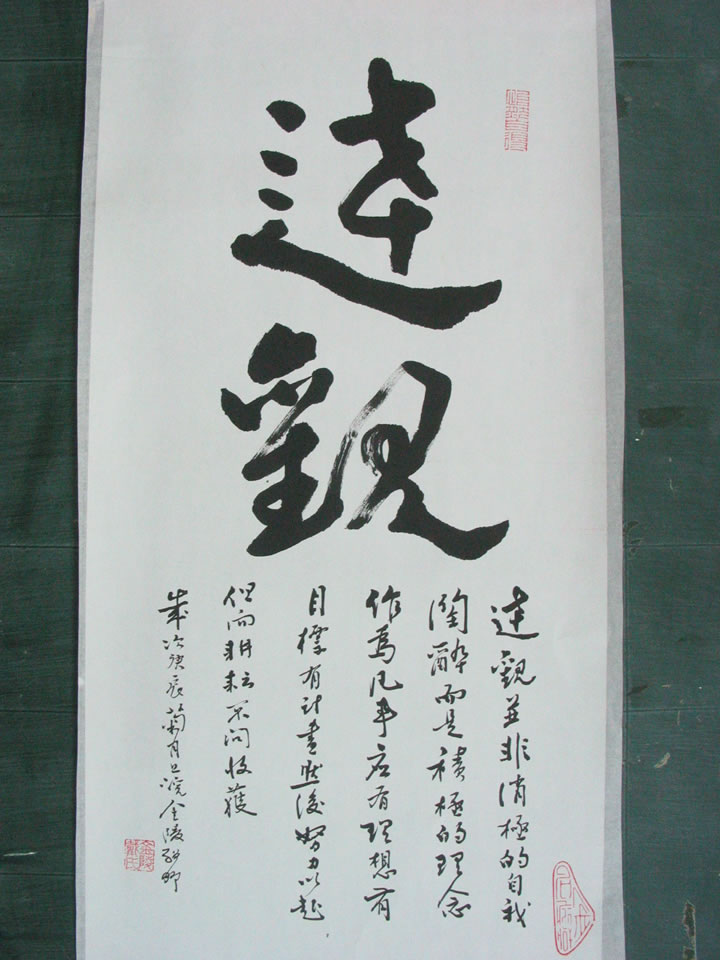 達觀
達觀並非消極的自我
陶醉而是積極的理念
作為凡事應有理想有
目標有計畫然後努力以赴
但問耕耘不問收獲
歲次庚辰菊月上浣金陵